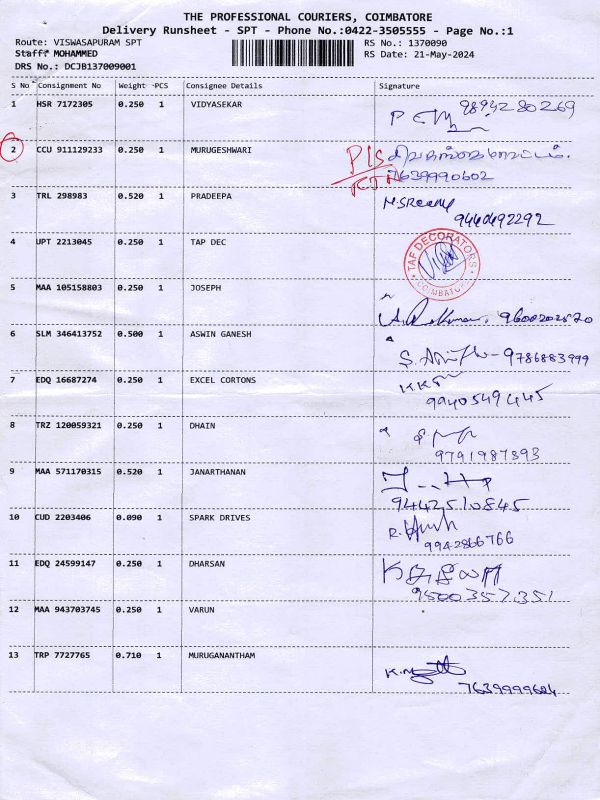 THE PROFESSIONAL COURIERS, COIMBATORE
Delivery Runsheet - SPT - Phone No.:0422-3505555 - Page No.:1
Route: VISWASAPURAM SPT RS No.: 1370090
Staff: MOHAMMED RS Date: 21-May-2024
DRS No.: DCJB137009001
S No Consignment No Weight -PCS Consignee Details Signature
1 HSR 7172305 0.250 1 VIDYASEKAR 9894280269
2 CCU 911129233 0.250 1 MURUGESHWARI P/S
7639990602
3 TRL 298983 0.520 1 PRADEEPA
9440492292
4 UPT 2213045 0.250 1 TAP DEC TAF DECORATORS COIMBATORE
5 MAA 105158803 0.250 1 JOSEPH
6 SLM 346413752 0.500 1 ASWIN GANESH 9786883999
7 EDQ 16687274 0.250 1 EXCEL CORTONS
9940549445
8 TRZ 120059321 0.250 1 DHAIN
9791987393
9 MAA 571170315 0.520 1 JANARTHANAN
9442510845
10 CUD 2203406 0.090 1 SPARK DRIVES
9942866766
11 EDQ 24599147 0.250 1 DHARSAN
9500357351
12 MAA 943703745 0.250 1 VARUN
13 TRP 7727765 0.710 1 MURUGANANTHAM
7639999624